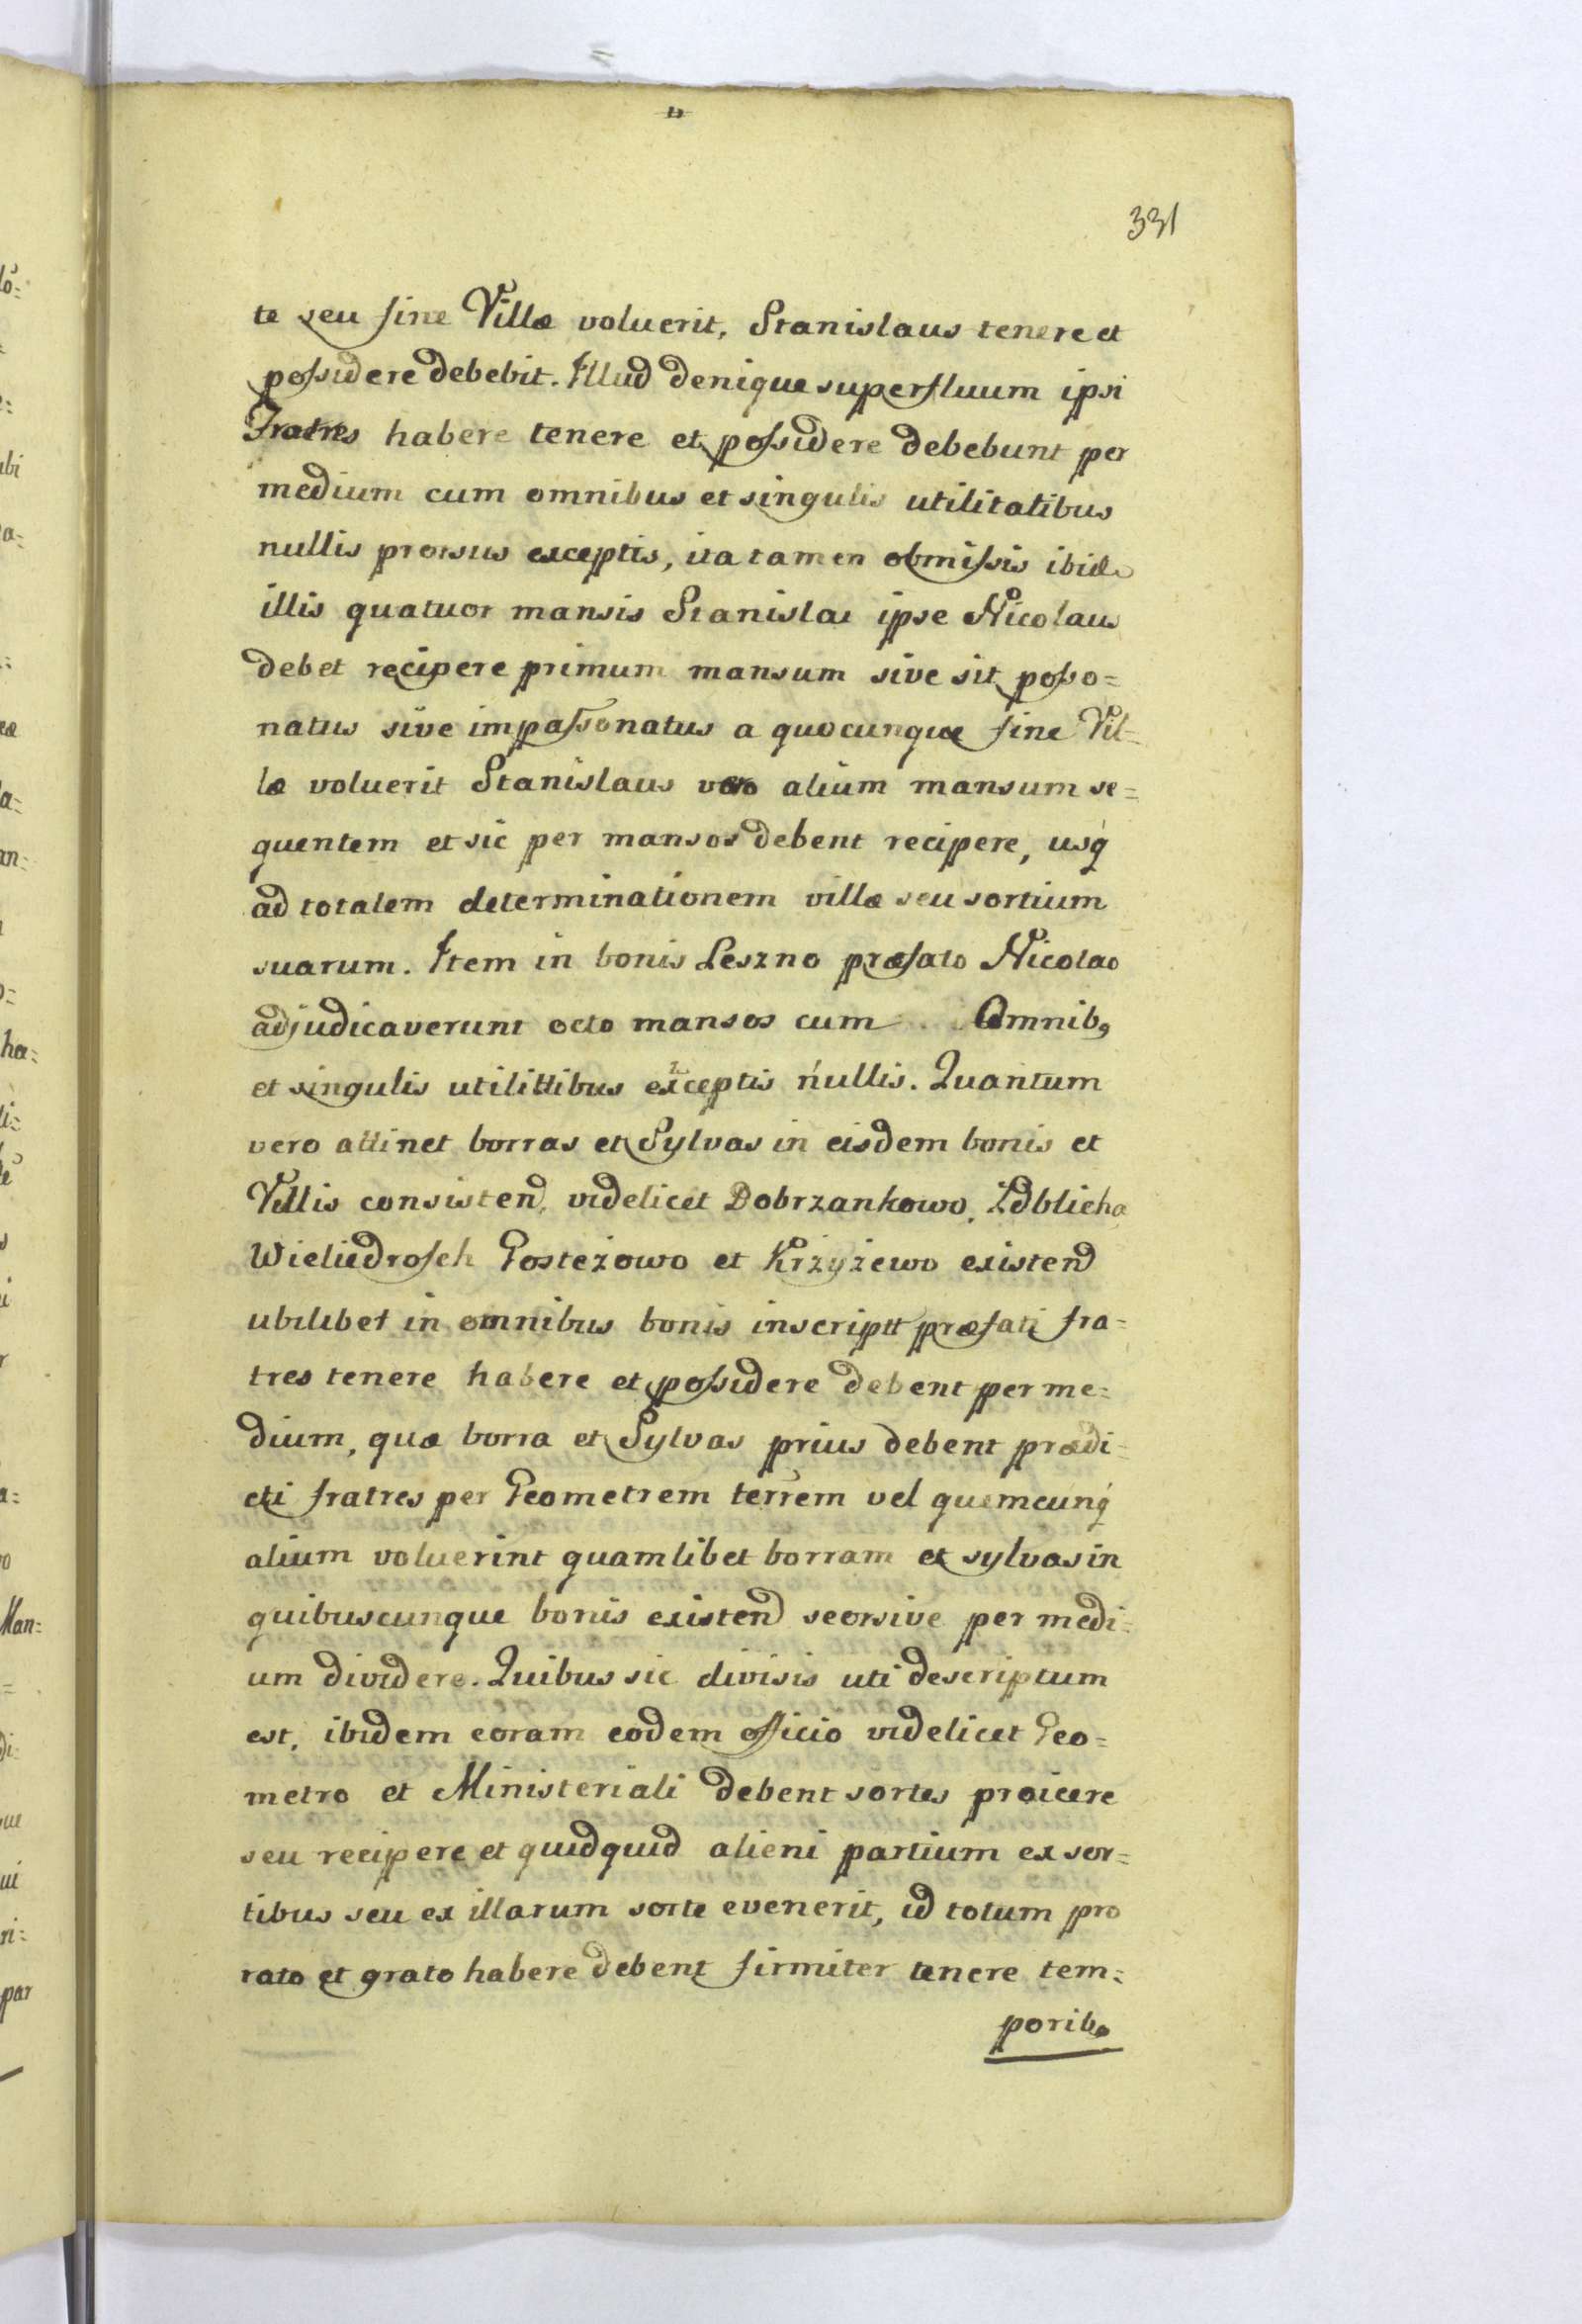 331
te seu fine Villæ voluerit, Stanislaus tenere et
possidere debebit. Illud denique superfluum ipsi
Fratres habere tenere et possidere debebunt per
medium cum omnibus et singulis utilitatibus
nullis prorsus exceptis, ita tamen obmissis ibide
illis quatuor mansis Stanislai ipse Nicolaus
debet recipere primum mansum sive sit posso=
natus sive impassonatus a quocunque fine Vil=
læ voluerit Stanislaus vero alium mansum se=
quentem et sic per mansos debent recipere, usq́
ad totalem determinationem villæ seu sortium
suarum. Item in bonis Leszno præfato Nicolao
adjudicaverunt octo mansos cum Omnib9
et singulis utilittibus exceptis nullis. Quantum
vero attinet borras et Sylvas in eisdem bonis et
Villis consistend, videlicet Dobrzankowo, Zdblicha
Wieliedrosch Gosteżowo et Krzyżewo existend
ubilibet in omnibus bonis inscriptt præfati fra=
tres tenere habere et possidere debent per me=
dium, quæ borra et Sylvas prius debent prædi=
cti fratres per Geometrem terrem vel quemcunq́
alium voluerint quamlibet borram et sylvas in
quibuscunque bonis existend seorsive per medi=
um dividere. Quibus sic divisis uti descriptum
est, ibidem coram eodem officio videlicet Geo=
metro et Ministeriali debent sortes proicere
seu recipere et quidquid alieni partium ex sor=
tibus seu ex illarum sorte evenerit, id totum pro
rato et grato habere debent firmiter tenere tem=
porib9